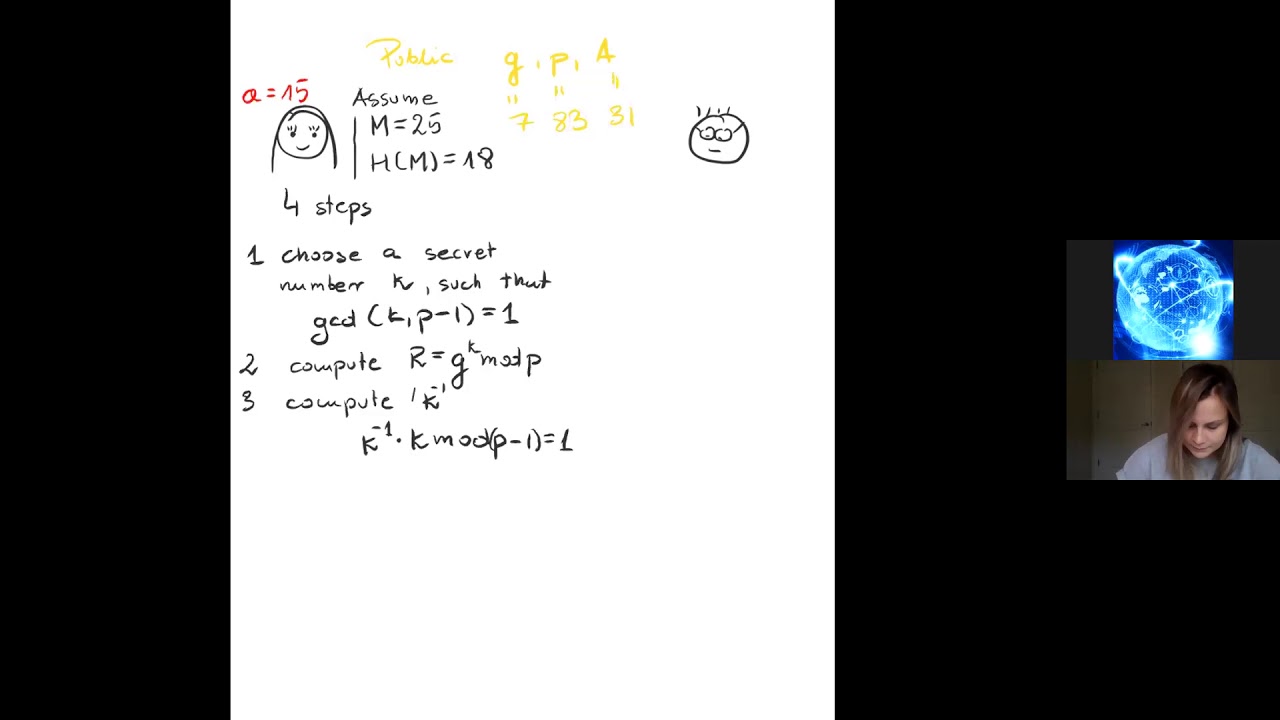 Public g, p, A
" " "
7 83 31
a=15
Assume
M=25
H(M)=18
4 steps
1 choose a secret
number k, such that
gcd(k,p-1)=1
2 compute R=g^k mod p
3 compute k^-1
k^-1 · k mod(p-1)=1